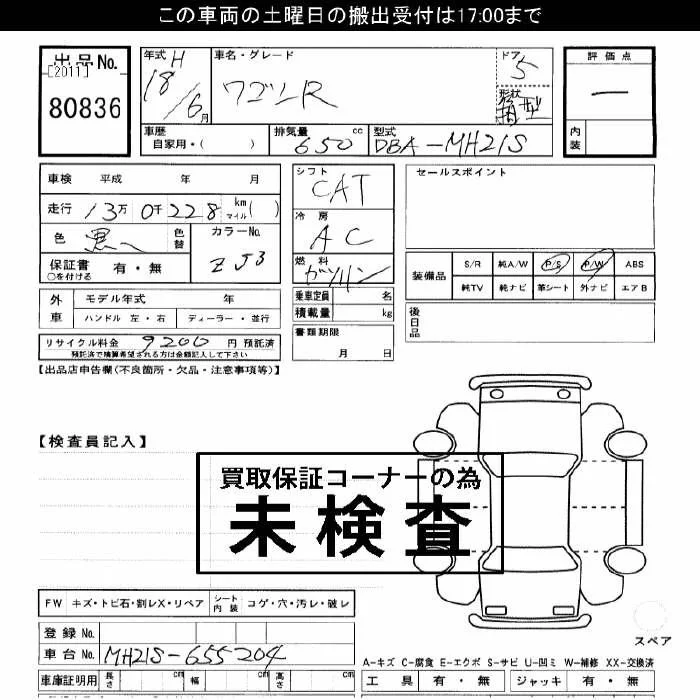 この車両の土曜日の搬出受付は17:00まで
出品No.
[2011]
80836
年式 H
18/6月
車名・グレード
ワゴンR
ドア
5
形状
箱型
評価点
―
内装
車歴
自家用・( )
排気量
650 cc
型式
DBA-MH21S
車検 平成 年 月
走行 13万0千228 km マイル ( )
色 黒
色替
カラーNo.
ZJ3
保証書 有・無
○を付ける
外車
モデル年式 年
ハンドル 左・右 ディーラー・並行
リサイクル料金 9200 円 預託済
預託済で精算希望される方は金額記入して下さい
シフト
CAT
冷房
AC
燃料
ガソリン
乗車定員 名
積載量 kg
書類期限
月 日
セールスポイント
装備品
S/R 純A/W P/S P/W ABS
純TV 純ナビ 革シート 外ナビ エアB
後日品
【出品店申告欄(不良箇所・欠品・注意事項等)】
【検査員記入】
買取保証コーナーの為
未検査
FW キズ・トビ石・割レX・リペア シート内装 コゲ・穴・汚レ・破レ
登録No.
車台No. MH21S-655204
車庫証明用 長さ cm 幅 cm 高さ cm
スペア
A-キズ C-腐食 E-エクボ S-サビ U-凹ミ W-補修 XX-交換済
工具 有・無 ジャッキ 有・無